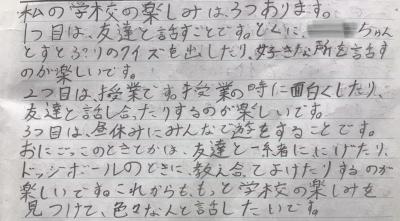 私の学校の楽しみは、3つあります。
1つ目は、友達と話すことです。とくに、ちゃん
とすとぷりのクイズを出したり、好きな所を話す
のが楽しいです。
2つ目は、授業です。授業の時に面白くしたり、
友達と話し合ったりするのが楽しいです。
3つ目は、昼休みにみんなで遊をすることです。
おにごっこのときとかは、友達と一緒に、にげたり、
ドッジボールのときに、教え合てよけたりするのが
楽しいです。これからも、もっと学校の楽しみを
見つけて、色々なんと話したいです。